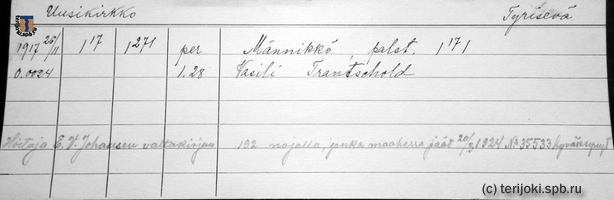 Uusikirkko Tyrisevä
1917 25/11 1 17 1 271 per Männikkö, palst. 1 17 1
0.0024 1.28 Vasili Trantschold
Hoitaja E. V. Johansen valtakirjan 192 nojalla, jonka maaherra päät. 20/3 1924 No 35533 hyväksynyt
(c) terijoki.spb.ru